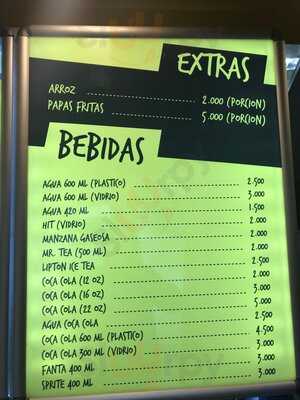 EXTRAS
ARROZ 2.000 (PORCION)
PAPAS FRITAS 5.000 (PORCION)
BEBIDAS
AGUA 600 ML (PLASTICO) 2.500
AGUA 600 ML (VIDRIO) 3.000
AGUA 420 ML 1.500
HIT (VIDRIO) 2.000
MANZANA GASEOSA 2.000
MR. TEA (500 ML) 2.000
LIPTON ICE TEA 2.500
COCA COLA (12 OZ) 2.000
COCA COLA (16 OZ) 3.000
COCA COLA (22 OZ) 5.000
AGUA COCA COLA 2.500
COCA COLA 600 ML (PLASTICO) 4.500
COCA COLA 300 ML (VIDRIO) 3.000
FANTA 400 ML 3.000
SPRITE 400 ML 3.000